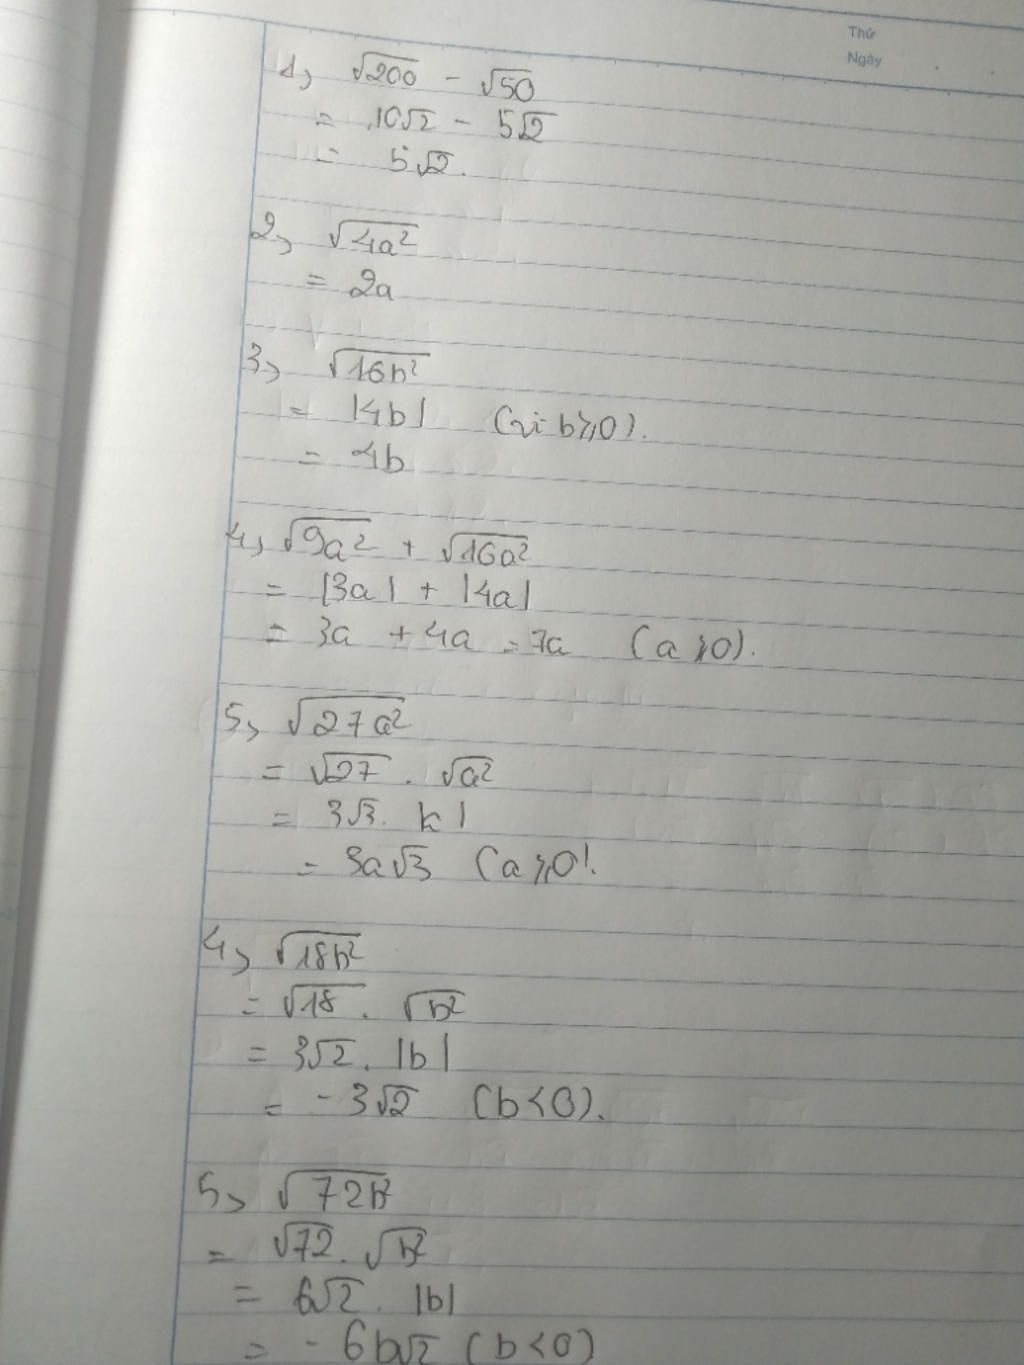 Thứ
Ngày
1, √200 - √50
= 10√2 - 5√2
= 5√2.
2, √4a²
= 2a
3, √16b²
= |4b| (vì b≥0).
= 4b
4, √9a² + √16a²
= |3a| + |4a|
= 3a + 4a = 7a (a ≥0).
5, √27a²
= √27 . √a²
= 3√3. |a|
= 3a√3 (a ≥0).
4, √18b²
= √18 . √b²
= 3√2. |b|
= -3√2 (b<0).
5, √72b²
= √72. √b²
= 6√2. |b|
= -6b√2 (b<0)